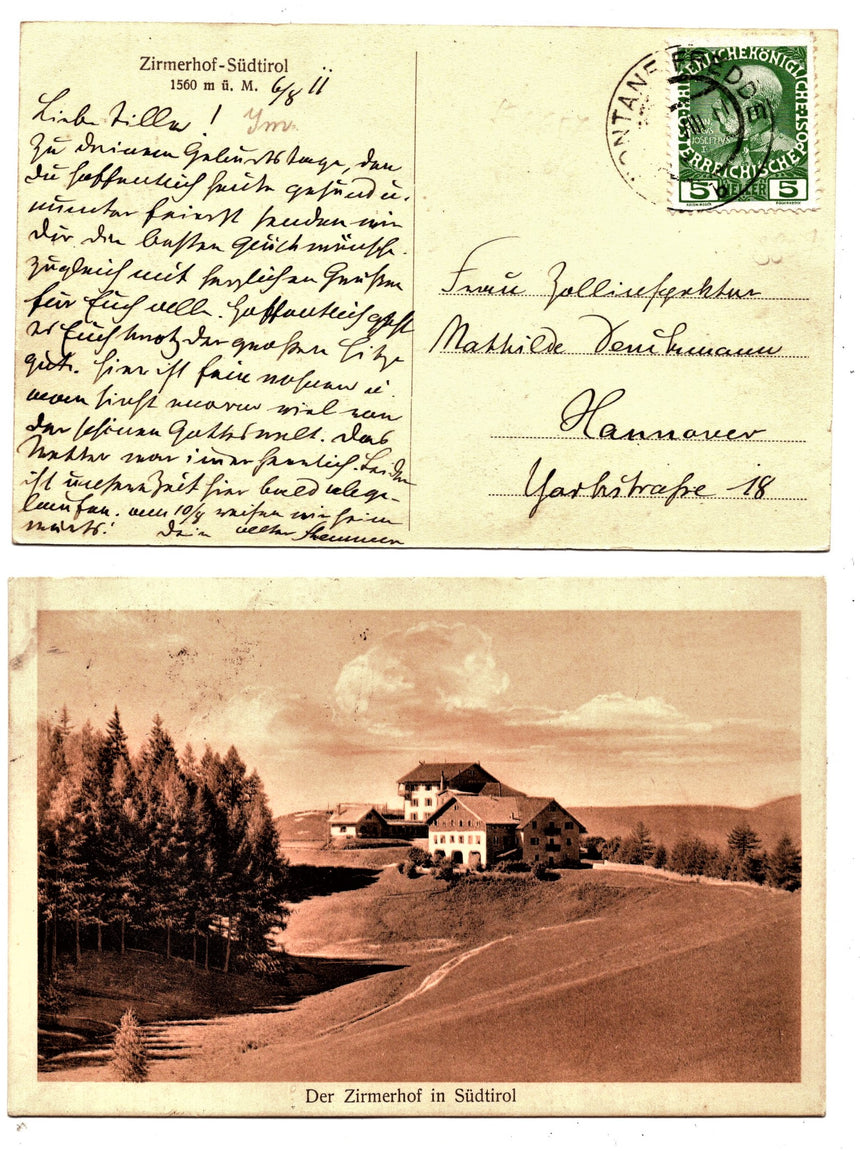 Zirmerhof-Südtirol
1560 m ü. M. 6/8 11
Liebe Tilla!
Zu Deinem Geburtstage, den
Du hoffentlich heute gesund u.
munter feierst senden wir
Dir die besten Glückwünsche.
Zugleich mit herzlichen Grüßen
für Euch alle. Hoffentlich geht
es Euch trotz der großen Hitze
gut. Hier ist fein wohnen u.
man sieht enorm viel von
der schönen Gotteswelt. Das
Wetter war immer herrlich. Leider
ist unsere Zeit hier bald abge-
laufen. am 10/8 reisen wir heim
wärts! Dein alter
K.K. ÖSTERREICHISCHE POST
5 HELLER 5
FONTANE FREDDE
Frau Zollinspektor
Mathilde
Hannover
Yorkstraße 18
Der Zirmerhof in Südtirol